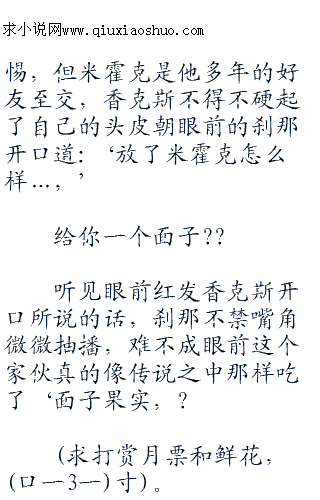 求小说网www.qiuxiaoshuo.com
惕，但米霍克是他多年的好
友至交，香克斯不得不硬起
了自己的头皮朝眼前的刹那
开口道：‘放了米霍克怎么
样…，’
给你一个面子??
听见眼前红发香克斯开
口所说的话，刹那不禁嘴角
微微抽播，难不成眼前这个
家伙真的像传说之中那样吃
了‘面子果实，?
(求打赏月票和鲜花，
(口一3一)寸)。